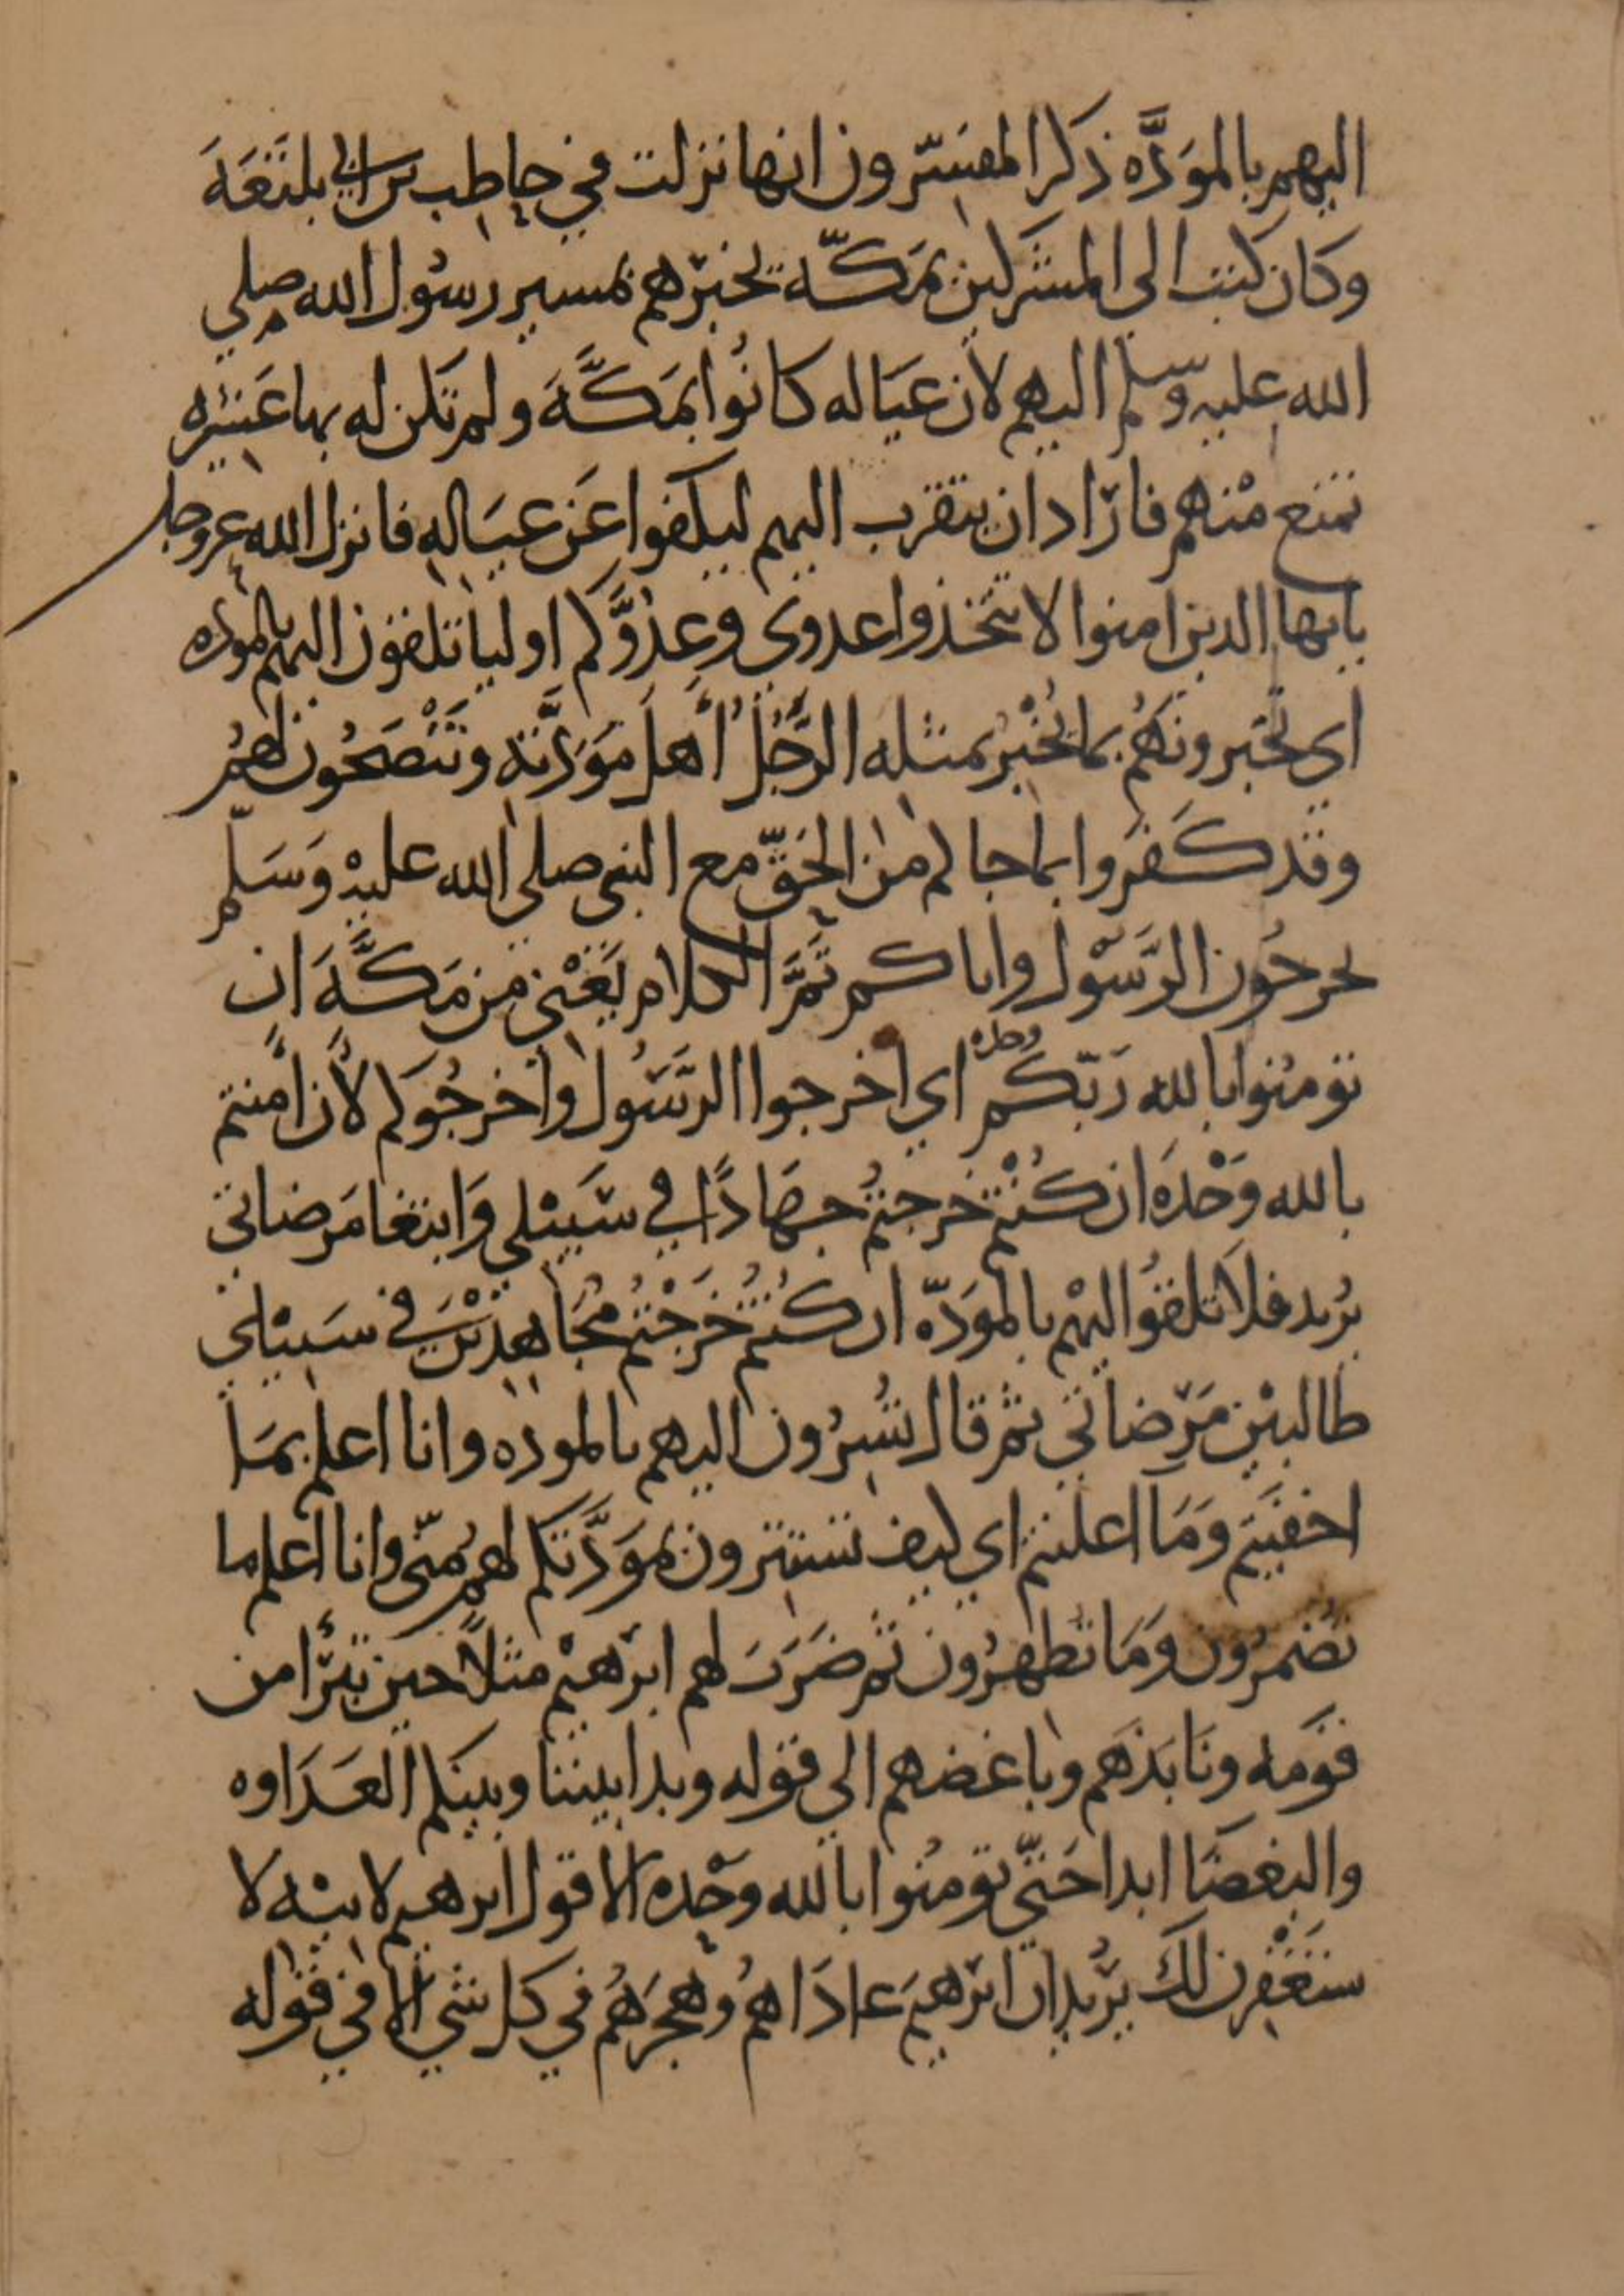 اليهم بالمودَّه ذكر المفسّرون انها نزلت في حاطب بن ابي بلتَعَهَ
وكان كتب الى المشركين بمَكّة يخبرهم بمسير رسُول الله صلي
الله عليه وسلم اليهم لان عيَاله كانُوا بمَكَّةَ ولم تكن له بها عَشيره
تمنع منْهم فاراد ان يتقرب اليهم ليكفوا عَن عيَالهِ فانزل الله عز وجل
يايها الذين امنوا لا تتخذوا عدوي وعدوَّكم اوليا تلقون اليهم بالموده
اي تخبرونَهُم بما يُخْبرُ بمثله الرَّجُلُ أهلَ مَوَدَّته وتَنْصَحُون لهُمْ
وقد كَفَروا بما جاكم من الحَقّ مع النبي صلي الله عليْهِ وَسَلّم
يخرجُون الرَّسُول واياكم تَمَّ الكلام يَعْني من مَكَّةَ ان
تومنُوا بالله رَبّكُم وحده اي اخرجوا الرَّسُول واخرجُوكم لأن امنتم
بالله وَحْدَه ان كُنْتم خرجتمُ جهَادًا في سَبيْلي وَابتغا مَرضاتي
يُريد فلا تلقُوا اليهْم بالموَدّه ان كُنْتُم خَرَجْتُم مُجَاهدْين في سَبيْلي
طالبيْن مَرضاتي ثم قال تُسِرُون اليهم بالموده وانا اعلم بمَا
اخفيتم وَمَا اعلنتم اي كيف تستترون بموَدَّتكم لهم منّي وانا اعلم ما
تُضمرُون وَمَا تظهرُون ثم ضَرَبَ لهم ابرهيْم مثلاً حين تبرَّأ من
قوَمه ونَابَذهَم وباغضهم الي قوله وبدا بيننا وبينكم العَدَاوه
والبغضَا ابدا حَتّي تومنُوا بالله وَحْده الا قول ابرهيم لابيْه لا
ستَغْفِرن لكَ يُريد ان ابرهيمَ عادَاهمُ وهجرَهُم في كل شي الا في قوله